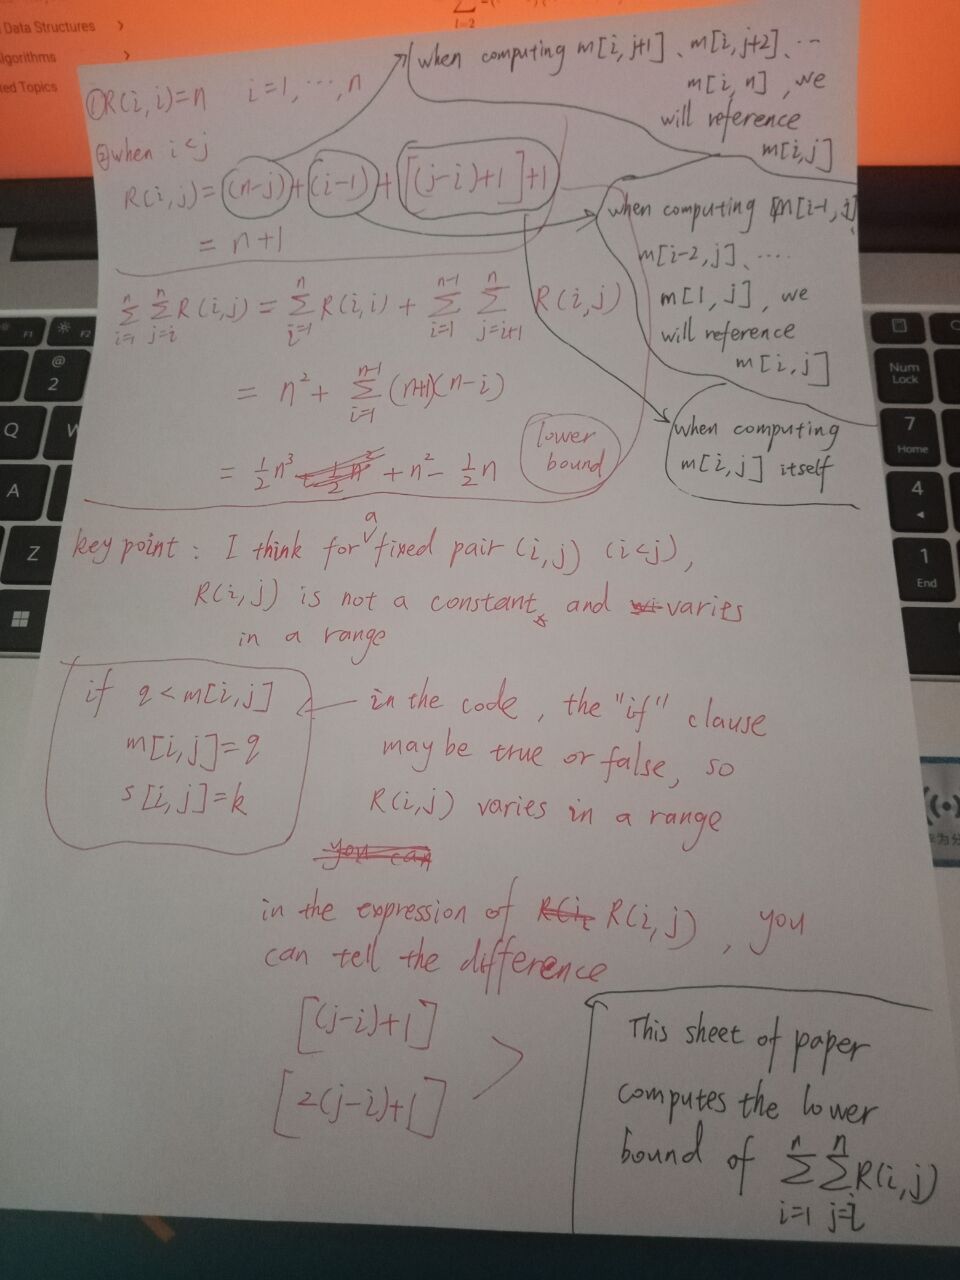 Data Structures
lgorithms
ed Topics
① R(i,i)=n i=1,⋯,n
② when i<j
R(i,j)=(n-j)+(i-1)+[(j-i)+1]+1
= n+1
when computing m[i,j+1]、m[i,j+2]、⋯
m[i,n], we
will reference
m[i,j]
when computing m[i-1,j]
m[i-2,j]、⋯
m[1,j], we
will reference
m[i,j]
when computing
m[i,j] itself
∑_{i=1}^{n} ∑_{j=i}^{n} R(i,j) = ∑_{i=1}^{n} R(i,i) + ∑_{i=1}^{n-1} ∑_{j=i+1}^{n} R(i,j)
= n² + ∑_{i=1}^{n-1} (n+1)(n-i)
= ½n³ + n² - ½n
lower
bound
key point: I think for a fixed pair (i,j) (i<j),
R(i,j) is not a constant, and varies
in a range
if q<m[i,j]
m[i,j]=q
s[i,j]=k
in the code, the "if" clause
may be true or false, so
R(i,j) varies in a range
you can
in the expression of R(i,j), you
can tell the difference
[(j-i)+1]
[2(j-i)+1]
This sheet of paper
computes the lower
bound of ∑_{i=1}^{n} ∑_{j=i}^{n} R(i,j)
F1
F2
@
2
Q
W
A
Z
Num
Lock
7
Home
4
1
End